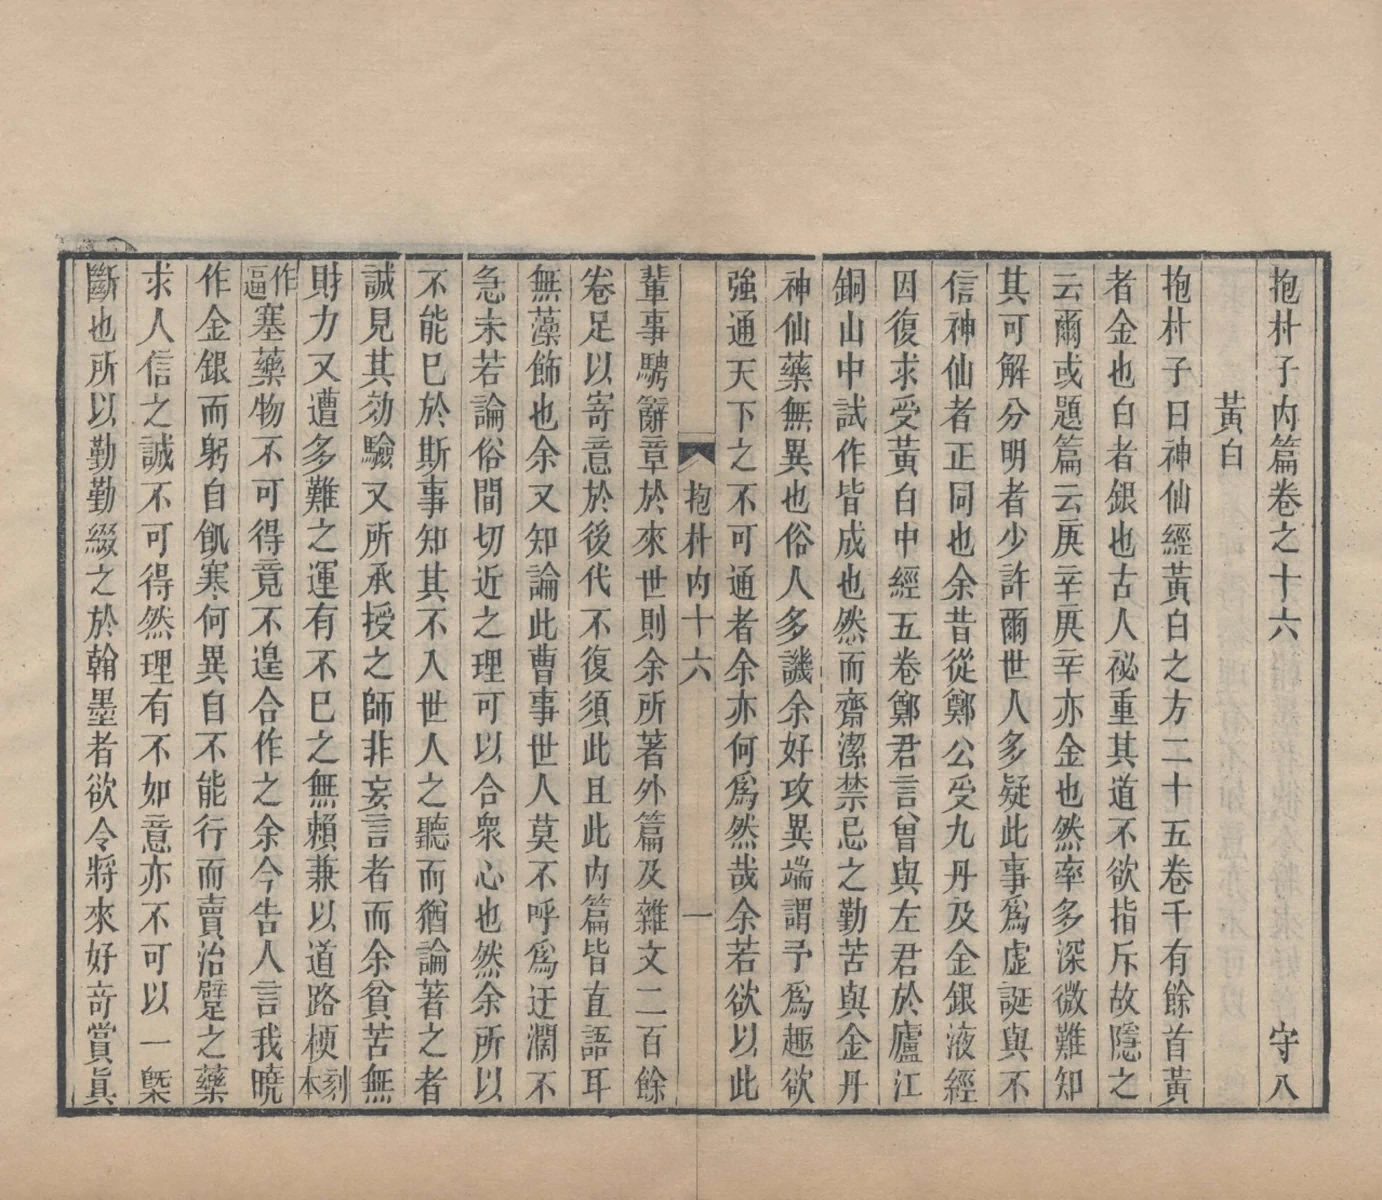 抱朴子內篇卷之十六 守八
黃白
抱朴子曰神仙經黃白之方二十五卷千有餘首黃
者金也白者銀也古人祕重其道不欲指斥故隱之
云爾或題篇云庚辛庚辛亦金也然率多深微難知
其可解分明者少許爾世人多疑此事爲虛誕與不
信神仙者正同也余昔從鄭公受九丹及金銀液經
因復求受黃白中經五卷鄭君言曾與左君於廬江
銅山中試作皆成也然而齋潔禁忌之勤苦與金丹
神仙藥無異也俗人多譏余好攻異端謂予爲趣欲
強通天下之不可通者余亦何爲然哉余若欲以此
抱朴內十六 一
輩事騁辭章於來世則余所著外篇及雜文二百餘
卷足以寄意於後代不復須此且此內篇皆直語耳
無藻飾也余又知論此曹事世人莫不呼爲迂濶不
急未若論俗間切近之理可以合衆心也然余所以
不能已於斯事知其不入世人之聽而猶論著之者
誠見其効驗又所承授之師非妄言者而余貧苦無
財力又遭多難之運有不已之無賴兼以道路梗刻本
作逼塞藥物不可得竟不遑合作之余今告人言我曉
作金銀而躬自飢寒何異自不能行而賣治躄之藥
求人信之誠不可得然理有不如意亦不可以一槩
斷也所以勤勤綴之於翰墨者欲令將來好奇賞眞